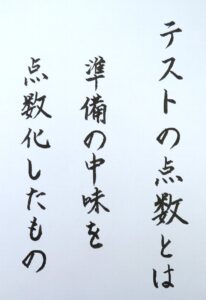 テストの点数とは
準備の中味を
点数化したもの